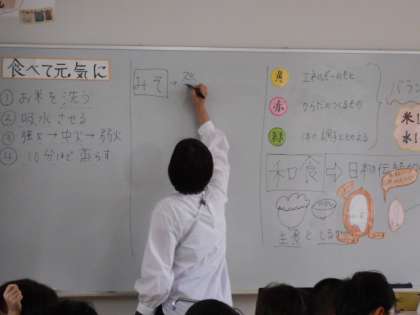 食べて元気に
① お米を洗う
② 吸水させる
③ 強火→中火→弱火
④ 10分ほど蒸らす
みそ →
黄 エネルギーのもと
赤 からだをつくるもの
緑 体の調子をととのえる
バラン
米!
水!
和食 ⇒ 日本の伝統的
主食と